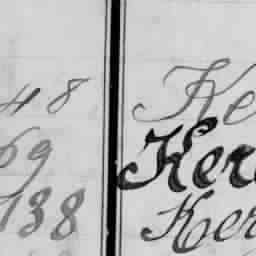 48 Ke
69 Ker
138 Ker